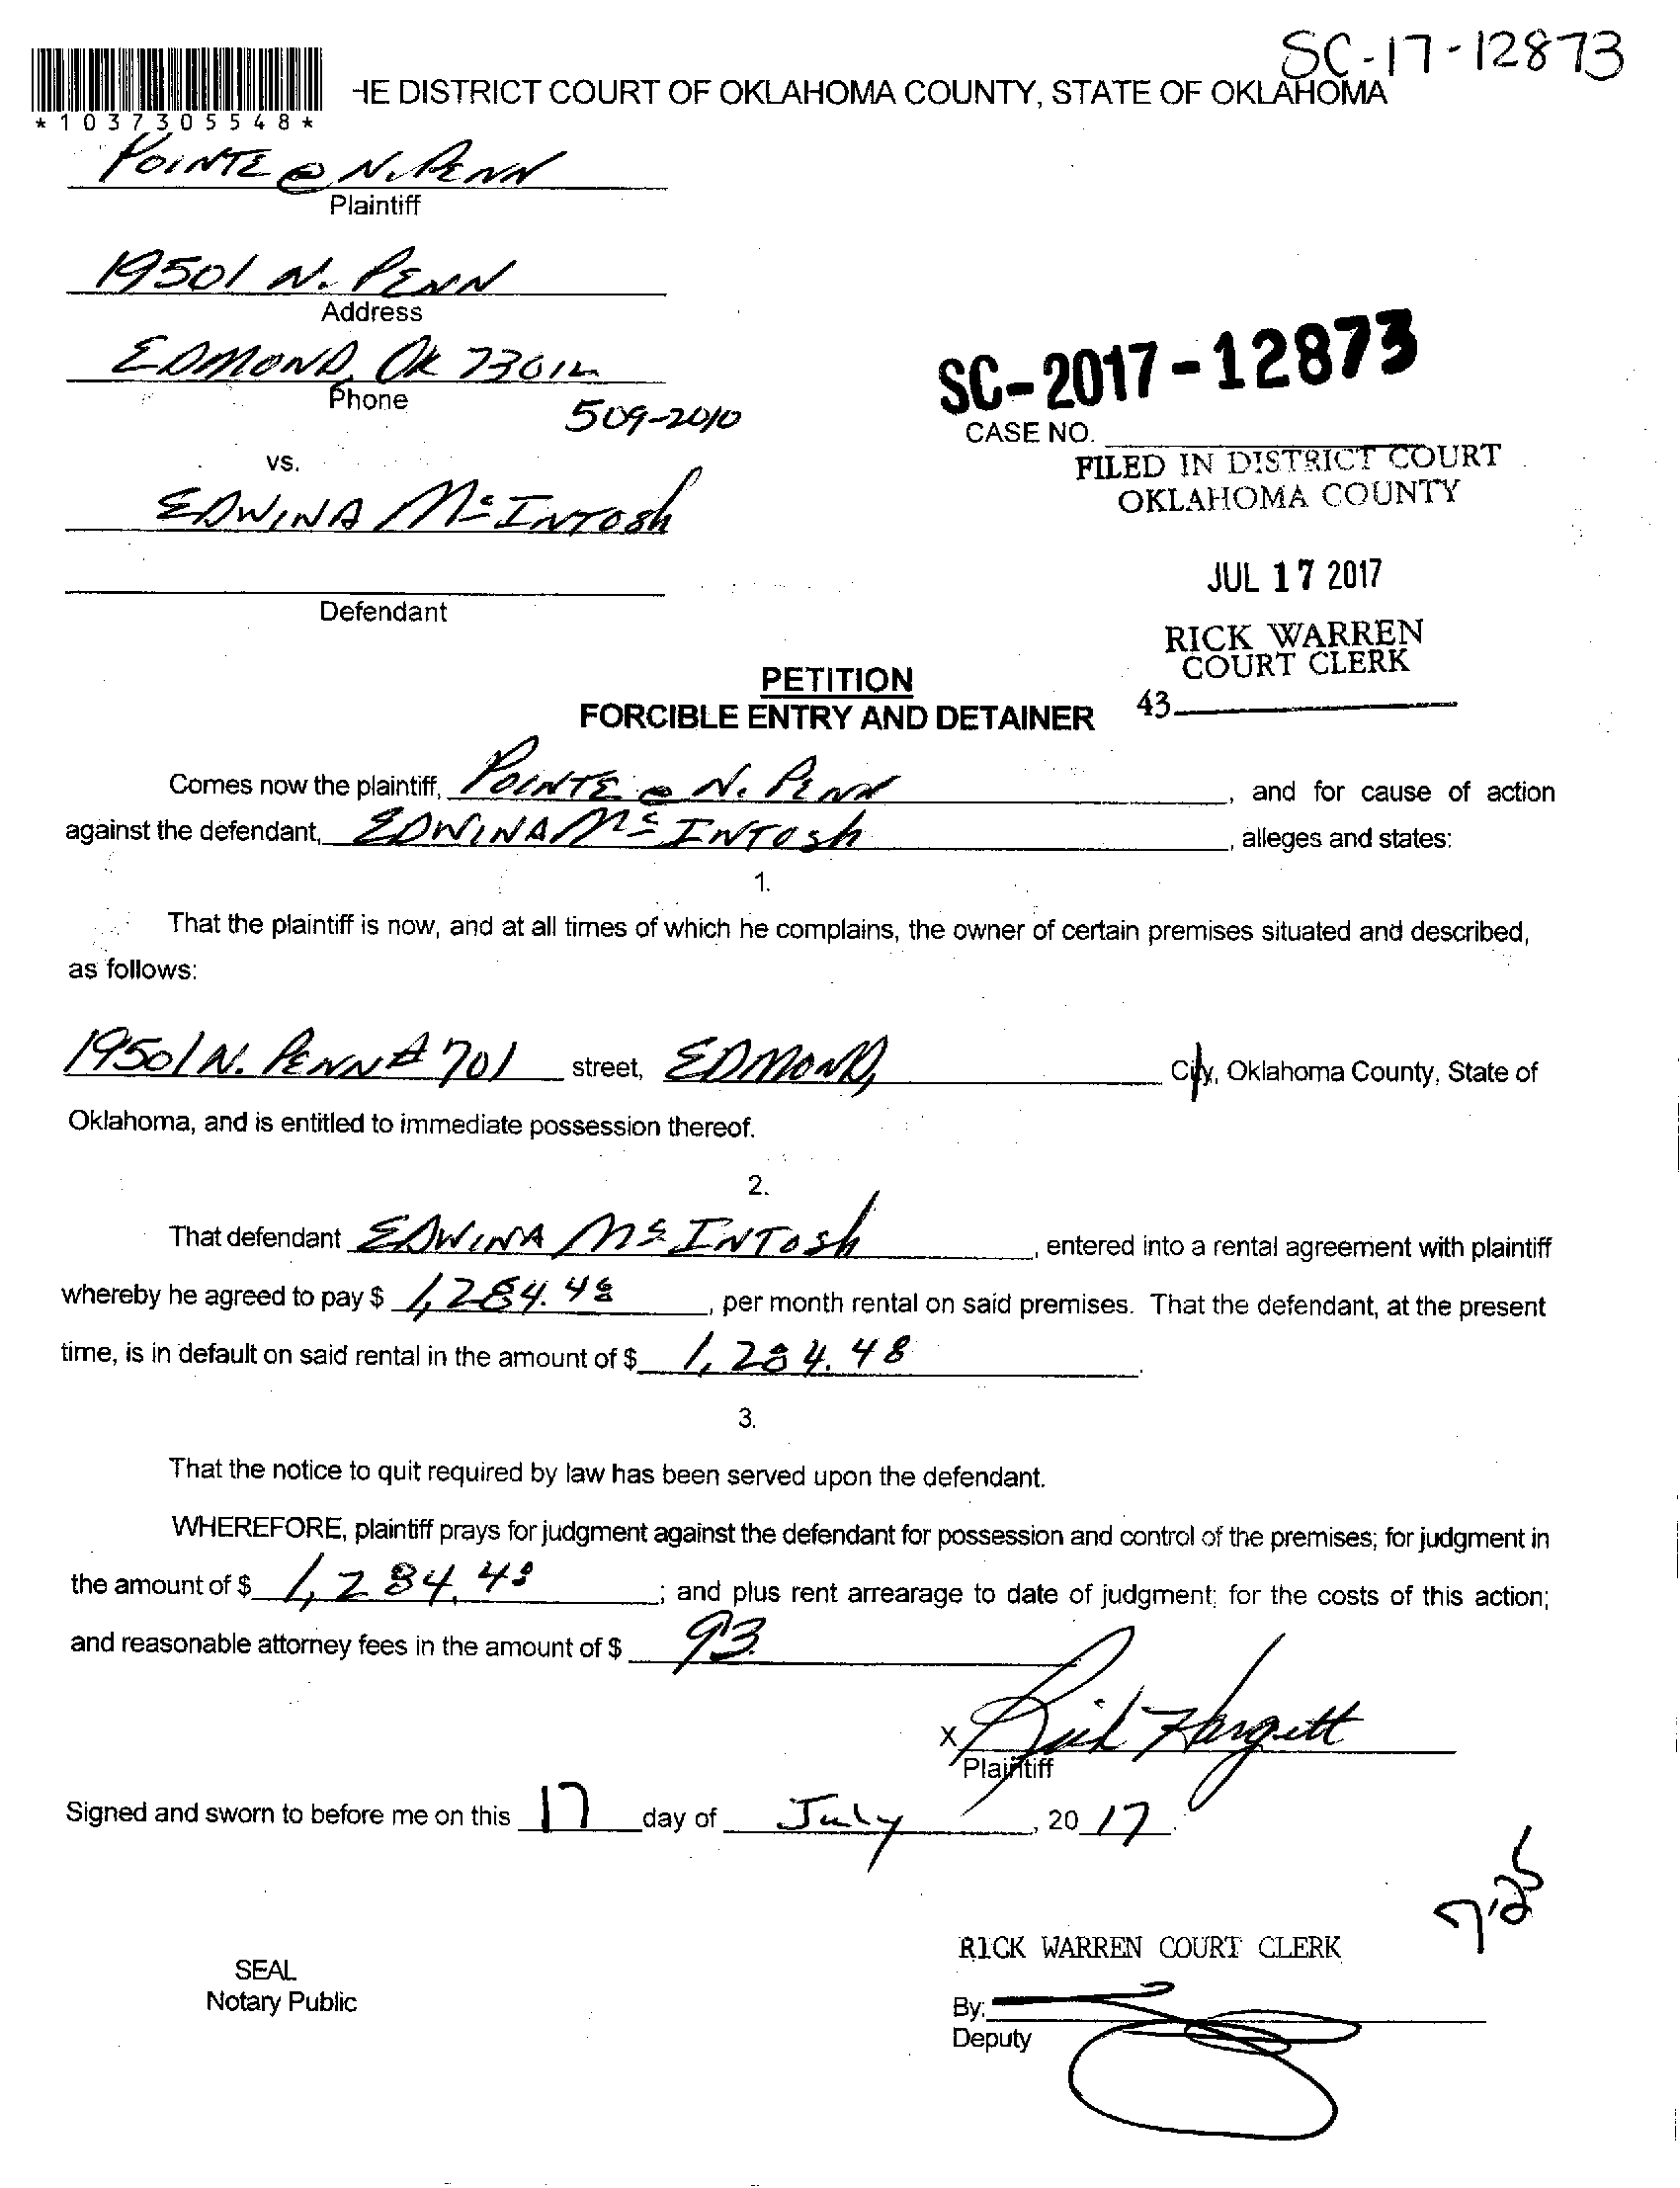 SC-17-12873
HE DISTRICT COURT OF OKLAHOMA COUNTY, STATE OF OKLAHOMA
*1037305548*
POINTE @ N. PENN
Plaintiff
19501 N. PENN
Address
EDMOND, OK 73012
Phone
509-2010
SC-2017-12873
CASE NO.
vs.
FILED IN DISTRICT COURT
OKLAHOMA COUNTY
EDWINA McINTOSH
JUL 17 2017
Defendant
RICK WARREN
COURT CLERK
43
PETITION
FORCIBLE ENTRY AND DETAINER
Comes now the plaintiff, POINTE @ N. PENN, and for cause of action
against the defendant, EDWINA McINTOSH, alleges and states:
1.
That the plaintiff is now, and at all times of which he complains, the owner of certain premises situated and described,
as follows:
19501 N. PENN # 701 street, EDMOND, City, Oklahoma County, State of
Oklahoma, and is entitled to immediate possession thereof.
2.
That defendant EDWINA McINTOSH, entered into a rental agreement with plaintiff
whereby he agreed to pay $ 1,284.48, per month rental on said premises. That the defendant, at the present
time, is in default on said rental in the amount of $ 1,284.48.
3.
That the notice to quit required by law has been served upon the defendant.
WHEREFORE, plaintiff prays for judgment against the defendant for possession and control of the premises; for judgment in
the amount of $ 1,284.48; and plus rent arrearage to date of judgment; for the costs of this action;
and reasonable attorney fees in the amount of $ 93.
x Rick Hargett
Plaintiff
Signed and sworn to before me on this 17 day of July, 20 17.
RICK WARREN COURT CLERK
SEAL
Notary Public
By:
Deputy